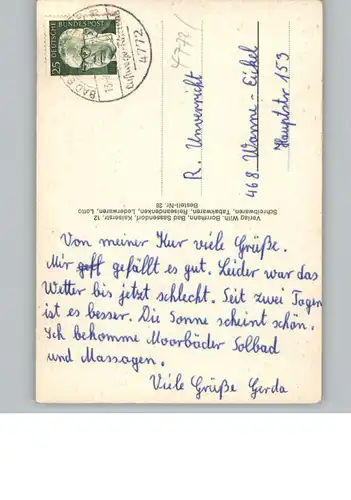 DEUTSCHE BUNDESPOST
25
4772
BAD
R. Unverricht
468 Wanne-Eickel
Hauptstr 159
4772/
Verlag Wilh. Bornemann, Bad Sassendorf, Kaiserstr. 12
Schreibwaren, Tabakwaren, Reiseandenken, Lederwaren, Lotto
Bestell-Nr. 28
Von meiner Kur viele Grüße.
Mir geff gefällt es gut. Leider war das
Wetter bis jetzt schlecht. Seit zwei Tagen
ist es besser. Die Sonne scheint schön.
Ich bekomme Moorbäder Solbad
und Massagen.
Viele Grüße Gerda